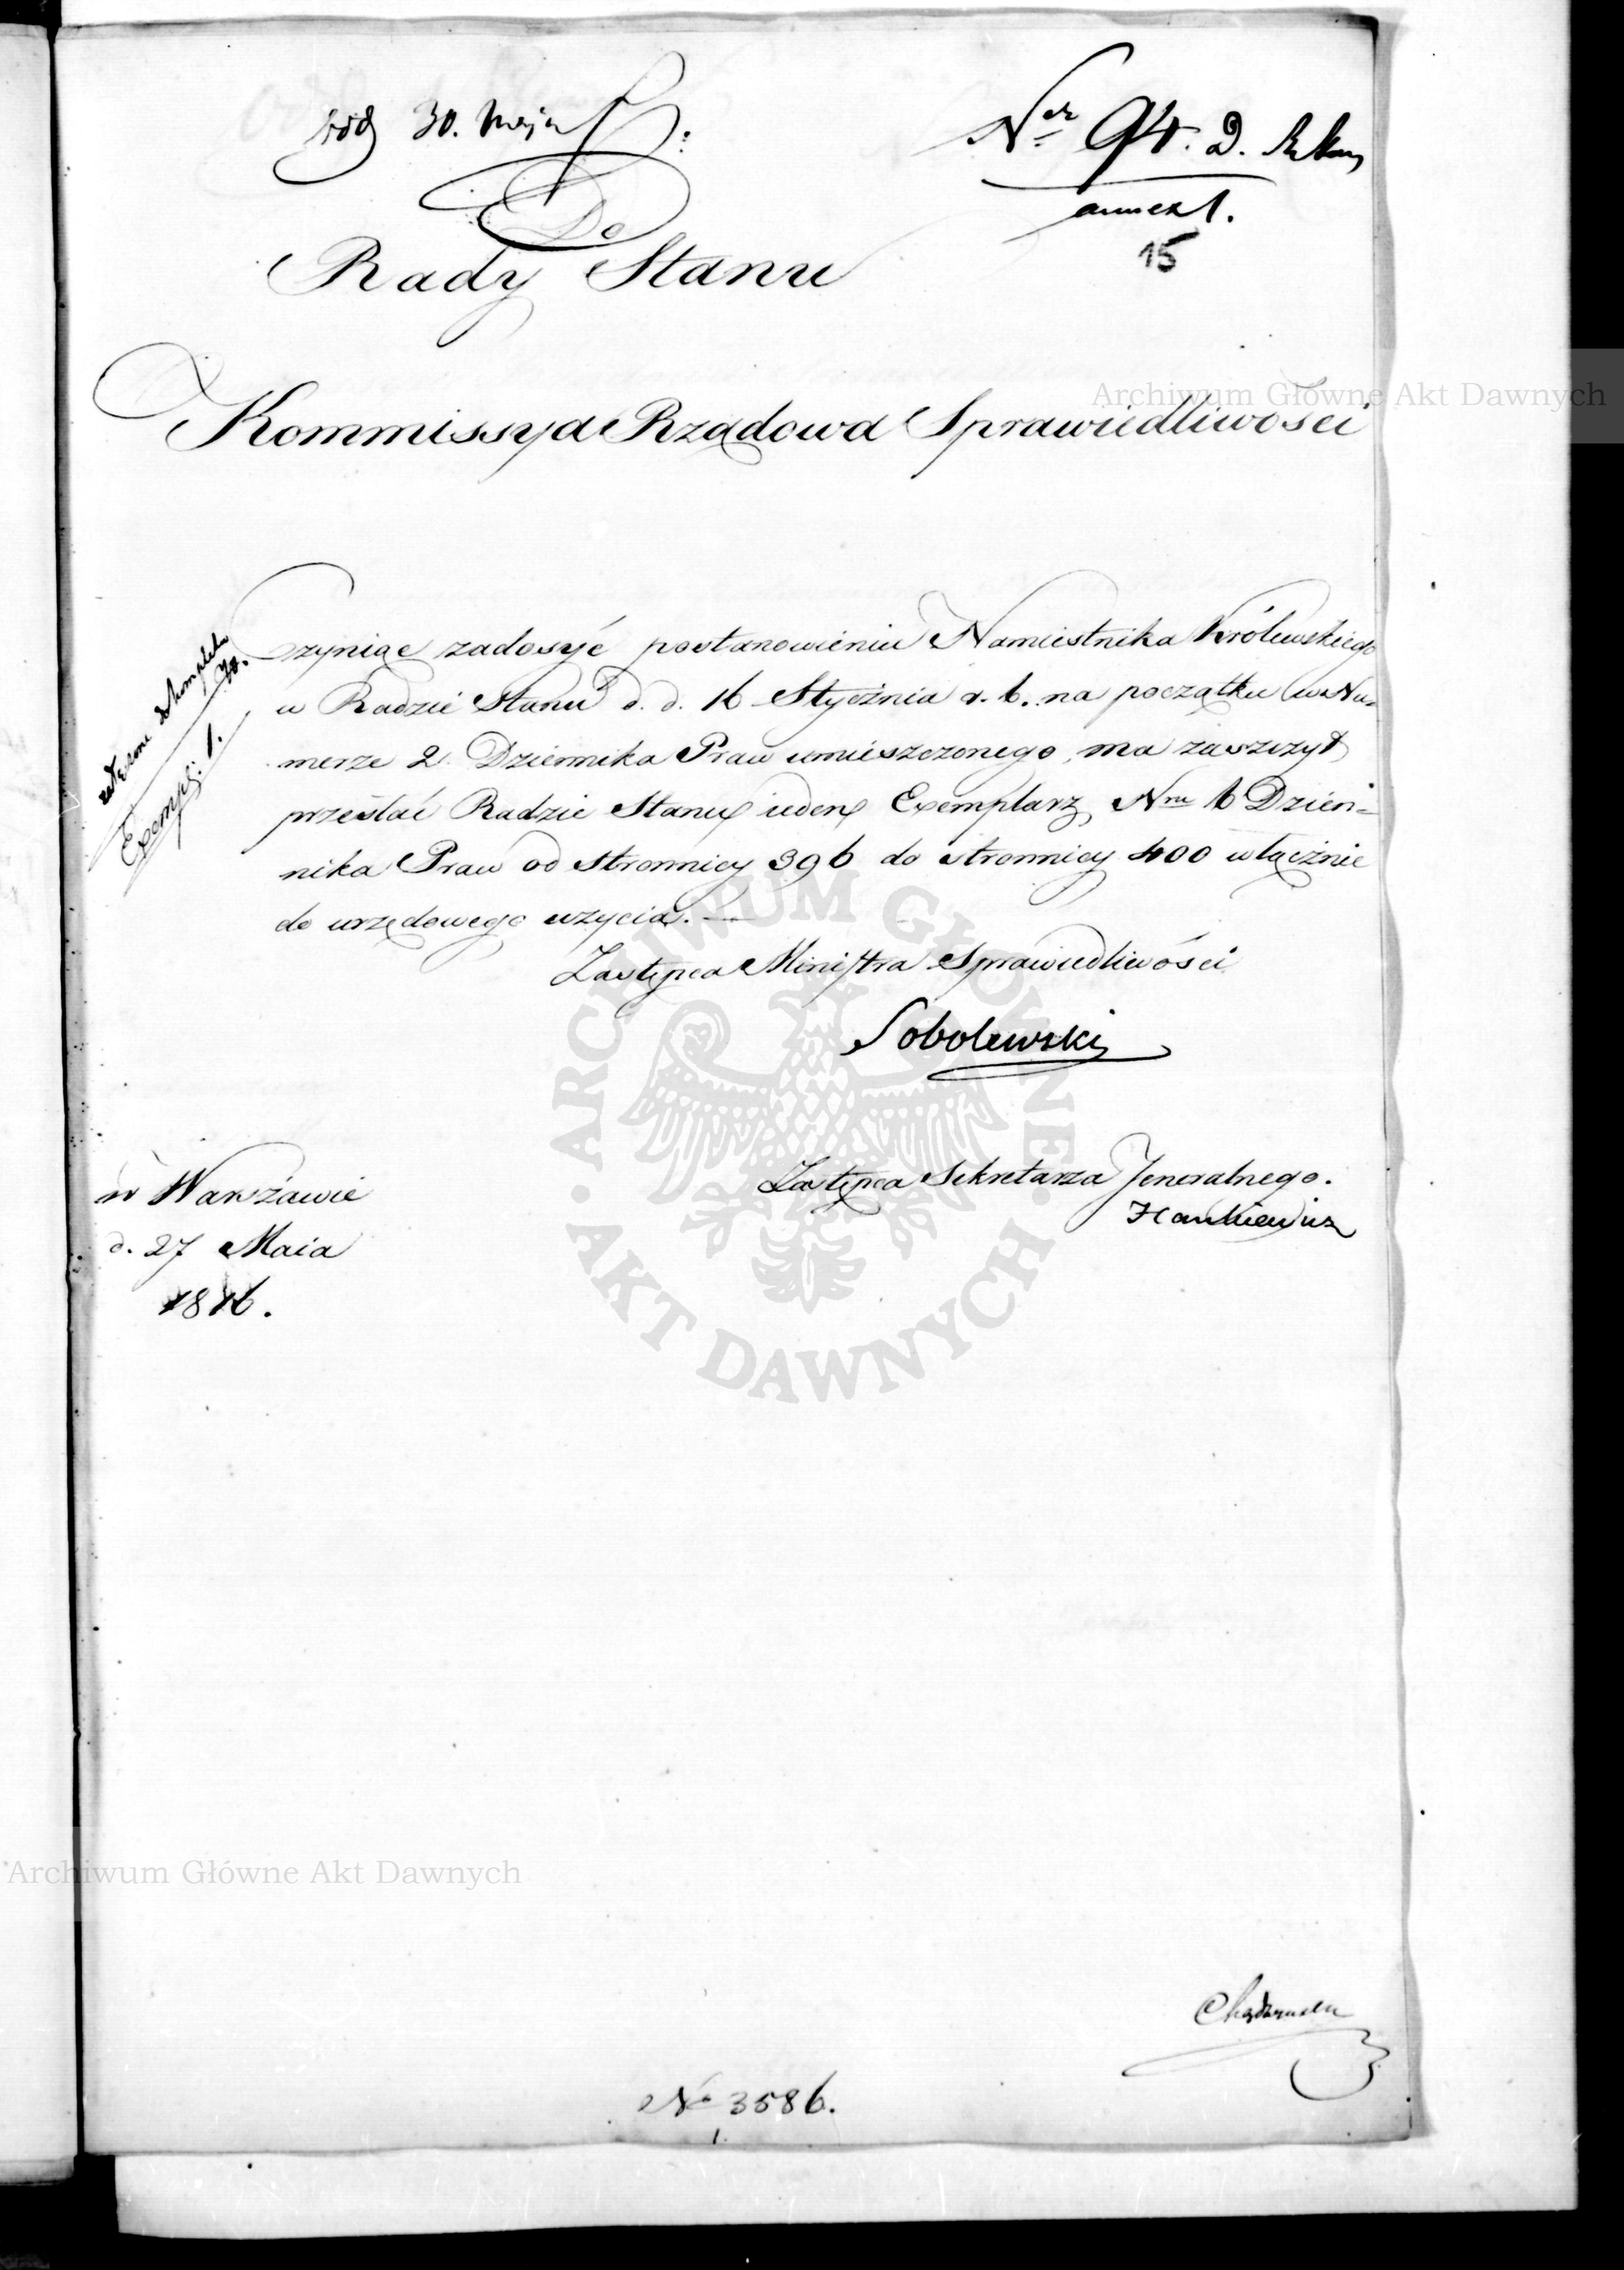 30. Maja
Ner 94. D.
annex 1.
15
Do
Rady Stanu
Kommissya Rządowa Sprawiedliwości
Archiwum Główne Akt Dawnych
Exempl: 1.
Czyniąc zadosyć postanowieniu Namiestnika Królewskiego
w Radzie Stanu d. d. 16 Stycznia r. b. na początku w Nu-
merze 2 Dziennika Praw umieszczonego, ma zaszczyt
przesłać Radzie Stanu ieden Exemplarz Nru 6 Dzien-
nika Praw od stronnicy 396 do stronnicy 400 włącznie
do urzędowego użycia. —
Zastępca Ministra Sprawiedliwości
Sobolewski
Zastępca Sekretarza Jeneralnego.
Hankiewicz
w Warszawie
d. 27 Maia
1816.
ARCHIWUM GŁÓWNE · AKT DAWNYCH ·
Archiwum Główne Akt Dawnych
No 3586.